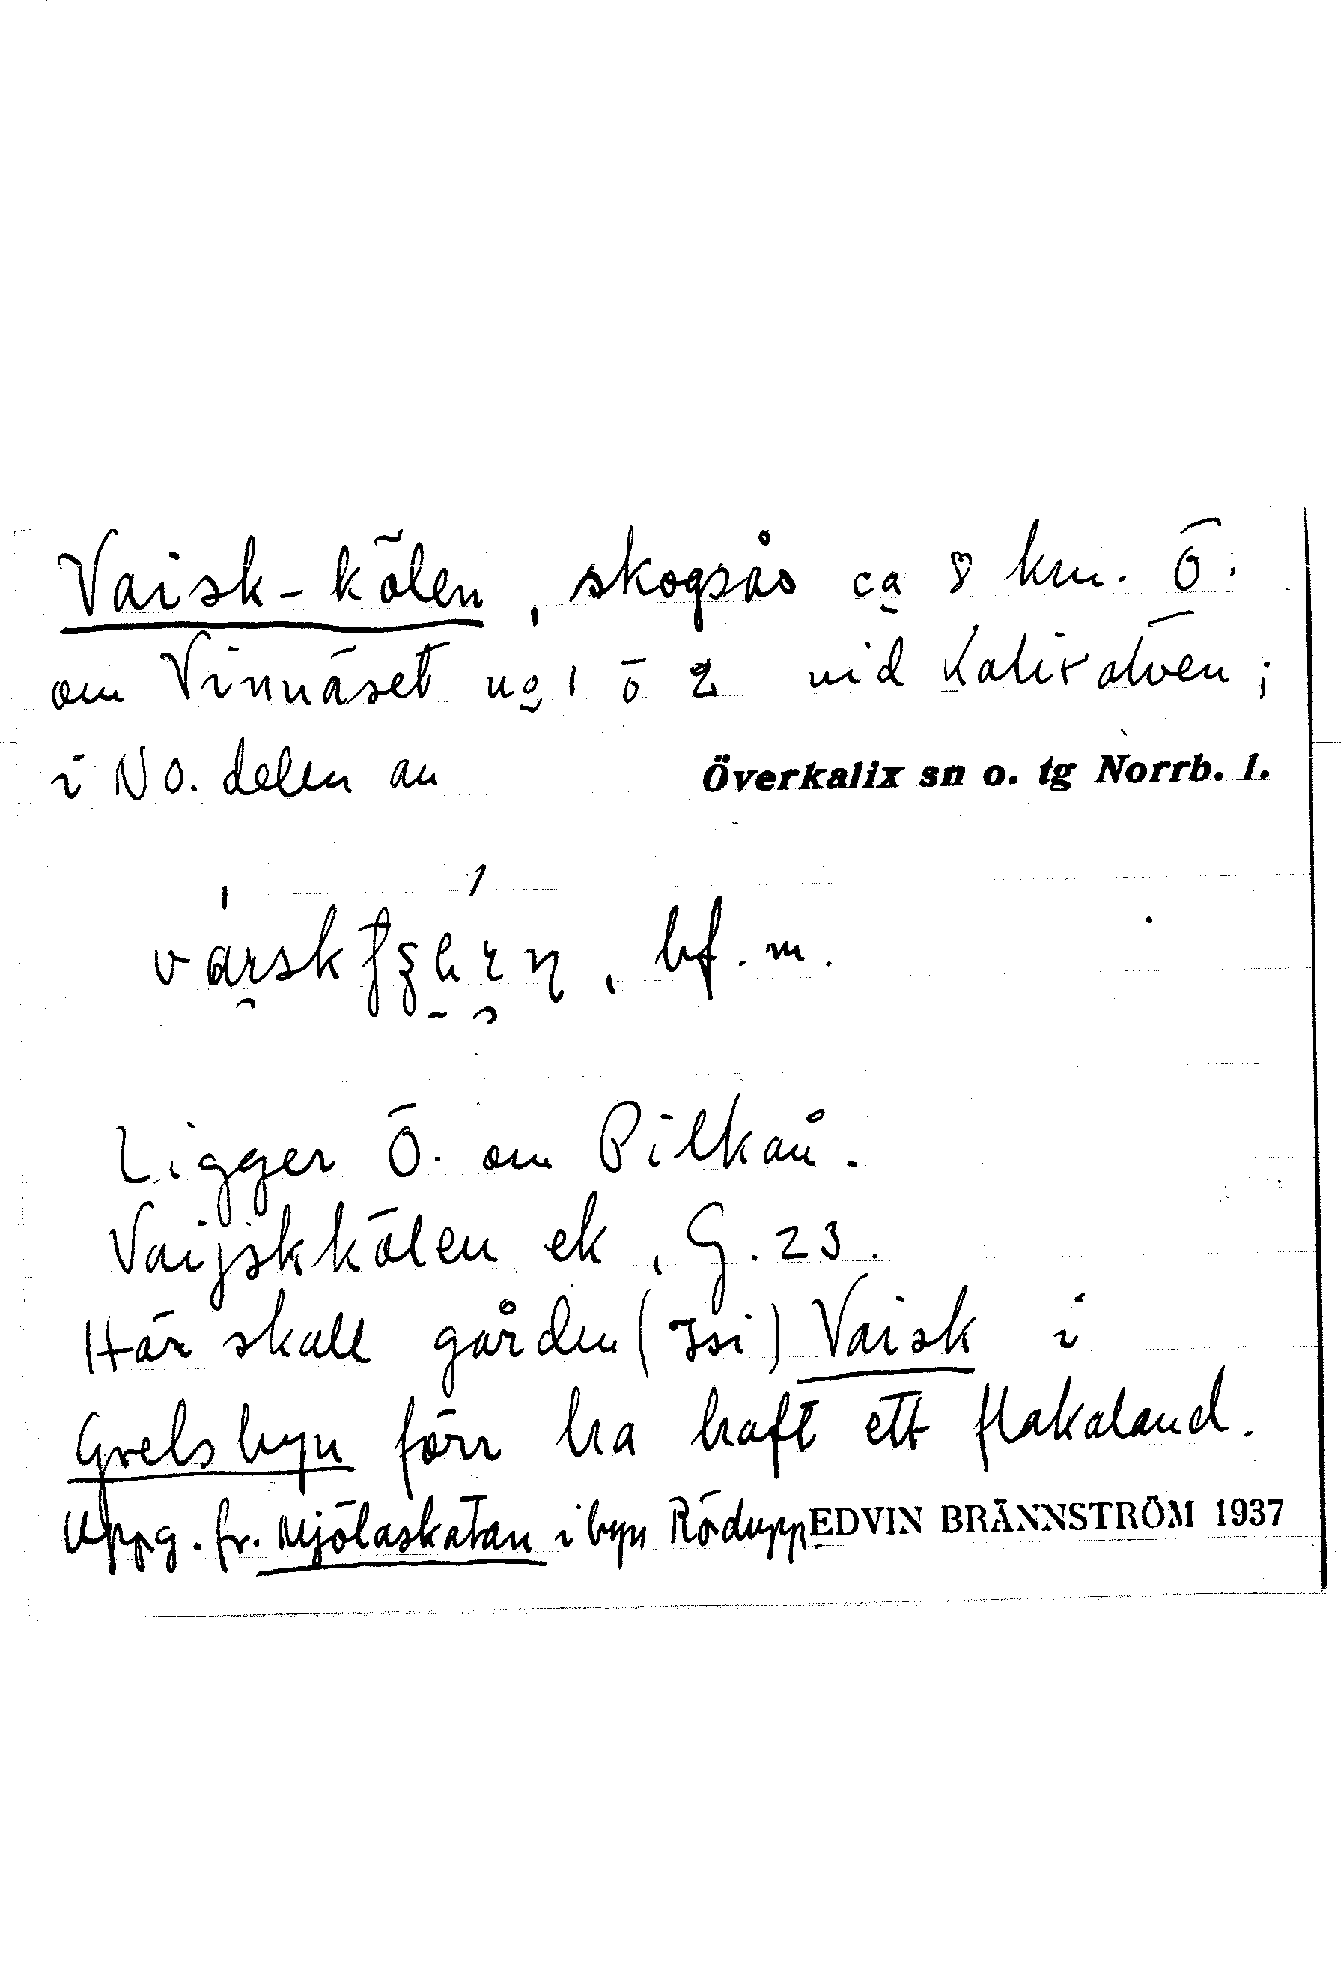 Vaisk-kölen, skogsås ca 8 km. Ö.
om Vinnäset no 1 o 2 vid Kalixälven;
i NO. delen av Överkalix sn o. tg Norrb. l.
bf. m.
Ligger Ö. om Pilkån.
Vaijskkölen ek, G. 23.
Här skall gården (Isi) Vaisk i
Grelsbyn förr ha haft ett flakaland.
Uppg. fr. Mjölaskatan i byn Rödupp EDVIN BRÄNNSTRÖM 1937